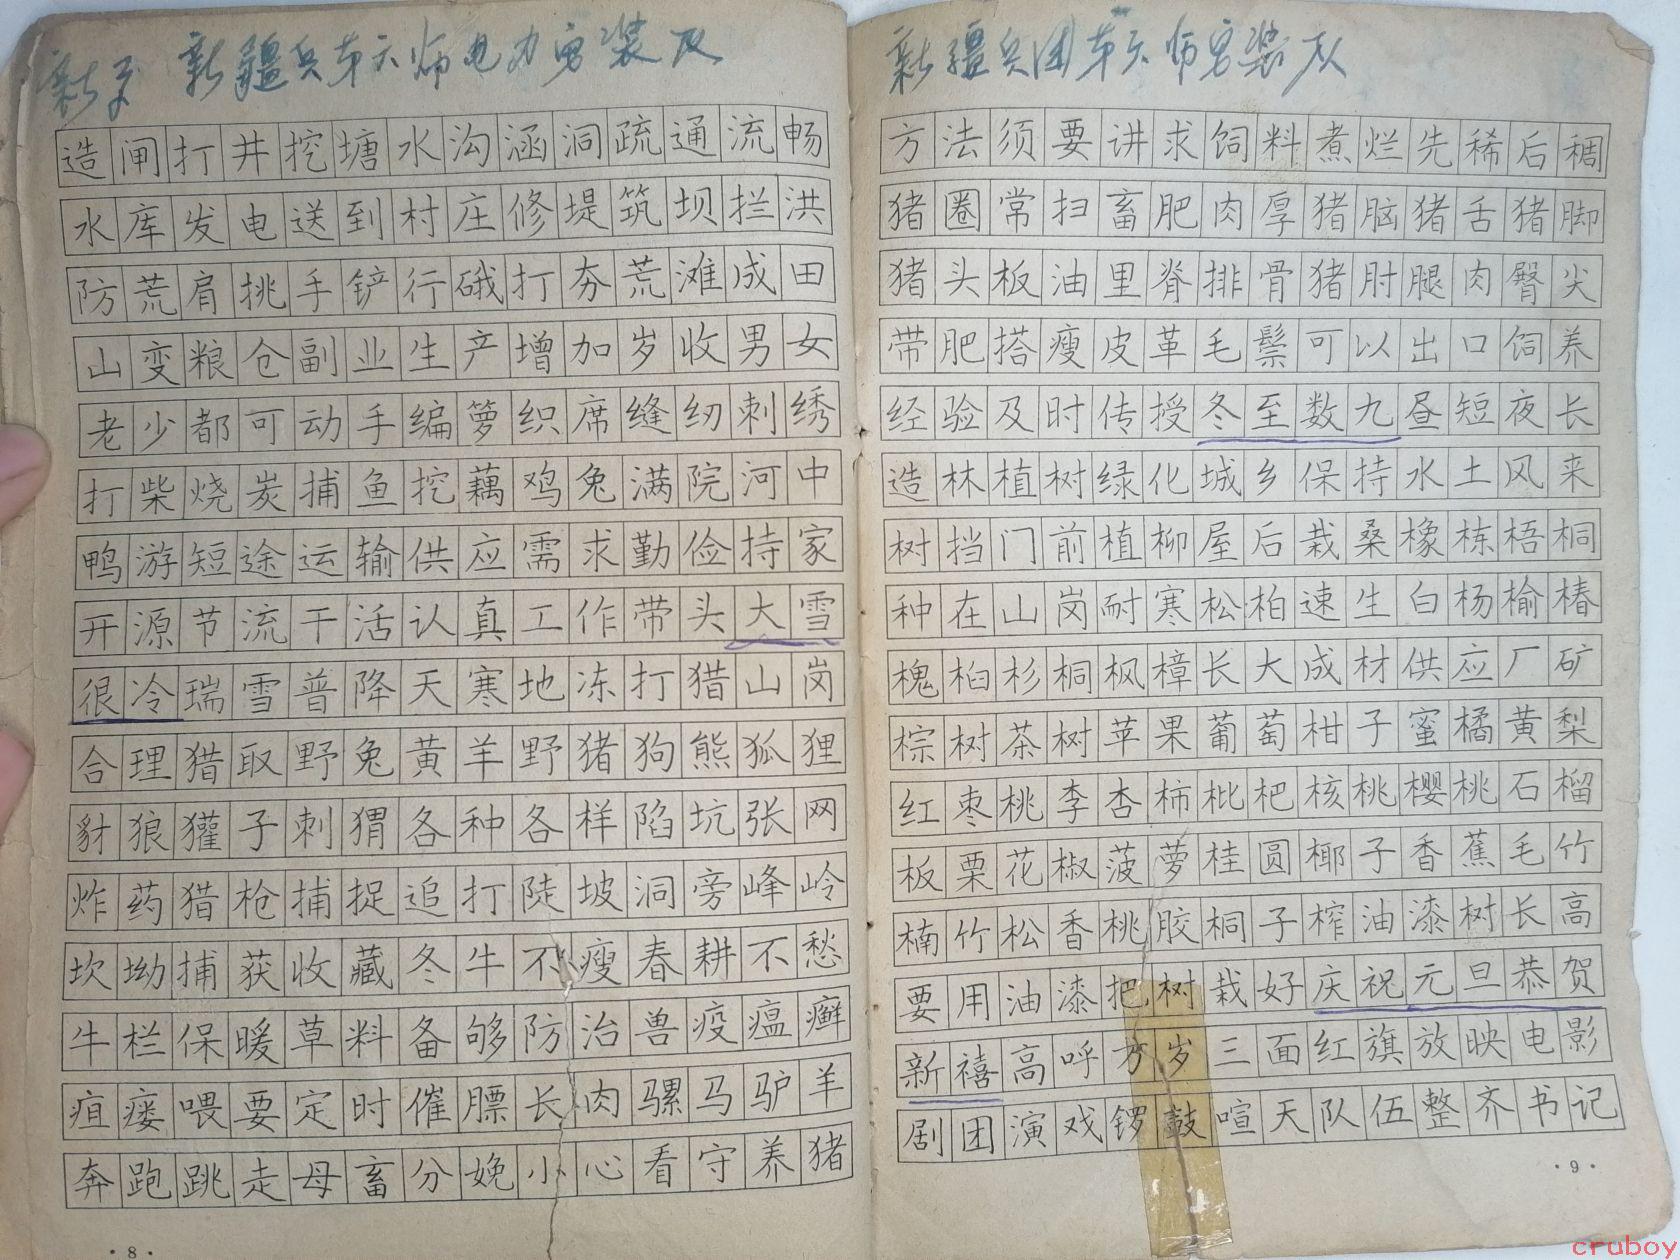 新疆兵第六师电力安装灰
造闸打井挖塘水沟涵洞疏通流畅
水库发电送到村庄修堤筑坝拦洪
防荒肩挑手铲行硪打夯荒滩成田
山变粮仓副业生产增加岁收男女
老少都可动手编箩织席缝纫刺绣
打柴烧炭捕鱼挖藕鸡兔满院河中
鸭游短途运输供应需求勤俭持家
开源节流干活认真工作带头大雪
很冷瑞雪普降天寒地冻打猎山岗
合理猎取野兔黄羊野猪狗熊狐狸
豺狼獾子刺猬各种各样陷坑张网
炸药猎枪捕捉追打陡坡洞旁峰岭
坎坳捕获收藏冬牛不瘦春耕不愁
牛栏保暖草料备够防治兽疫瘟癣
疽瘘喂要定时催膘长肉骡马驴羊
奔跑跳走母畜分娩小心看守养猪
·8·
新疆兵团第六师安装灰
方法须要讲求饲料煮烂先稀后稠
猪圈常扫畜肥肉厚猪脑猪舌猪脚
猪头板油里脊排骨猪肘腿肉臀尖
带肥搭瘦皮革毛鬃可以出口饲养
经验及时传授冬至数九昼短夜长
造林植树绿化城乡保持水土风来
树挡门前植柳屋后栽桑橡栋梧桐
种在山岗耐寒松柏速生白杨榆椿
槐桕杉桐枫樟长大成材供应厂矿
棕树茶树苹果葡萄柑子蜜橘黄梨
红枣桃李杏柿枇杷核桃樱桃石榴
板栗花椒菠萝桂圆椰子香蕉毛竹
楠竹松香桃胶桐子榨油漆树长高
要用油漆把树栽好庆祝元旦恭贺
新禧高呼万岁三面红旗放映电影
剧团演戏锣鼓喧天队伍整齐书记
·9·
cruboy